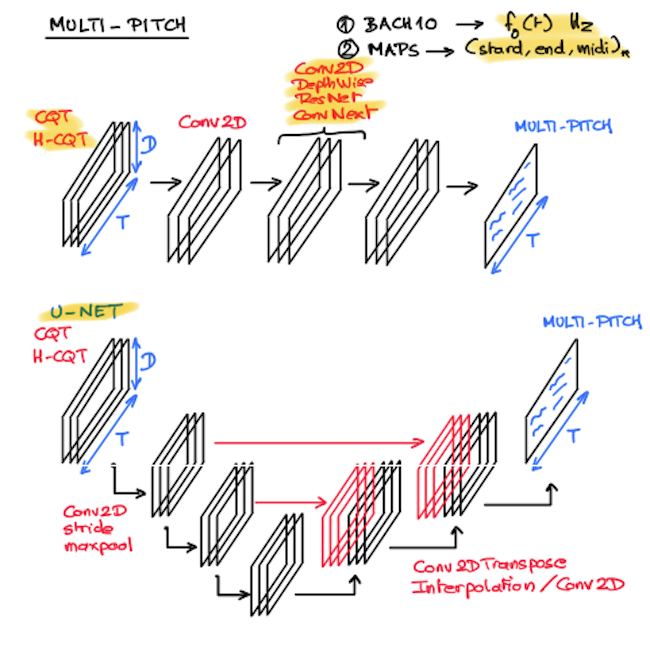 MULTI-PITCH
① BACH10 → f₀(t) Hz
② MAPS → (stard, end, midi)ₙ
CQT
H-CQT
D
T
Conv2D
Conv2D
DepthWise
ResNet
ConvNext
MULTI-PITCH
T
U-NET
CQT
H-CQT
D
T
Conv2D
stride
maxpool
Conv2DTranspose
Interpolation/Conv2D
MULTI-PITCH
T